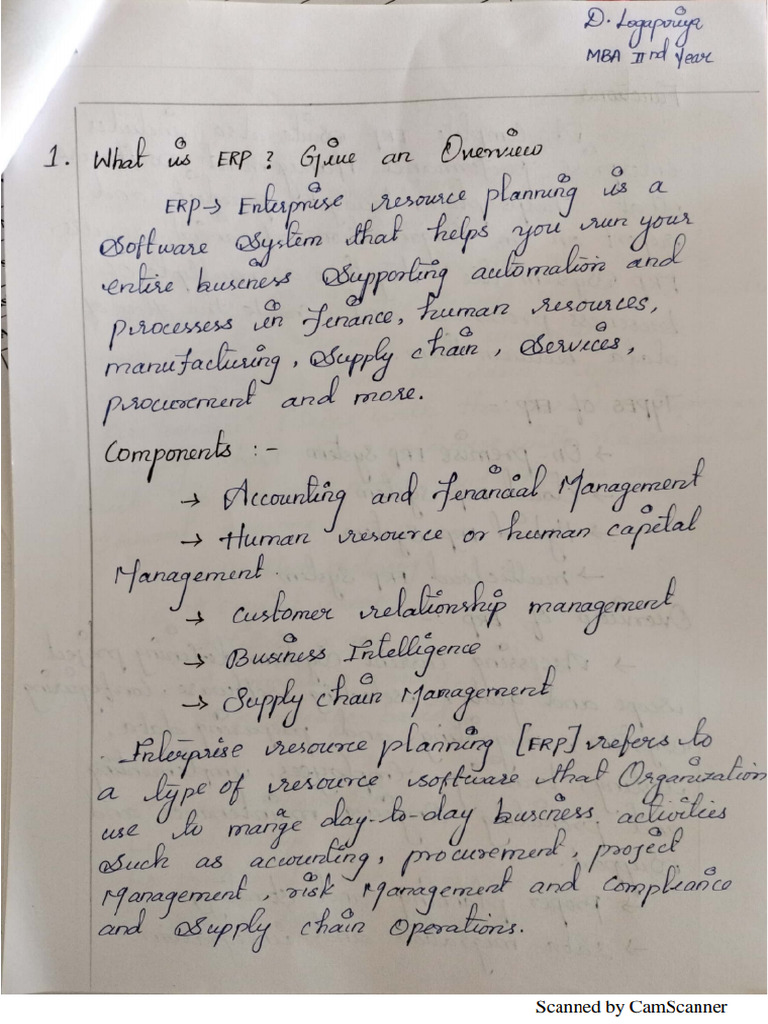 D. Logapriya
MBA IInd Year
1. What is ERP? Give an Overview
ERP → Enterprise resource planning is a
Software System that helps you run your
entire business Supporting automation and
processess in finance, human resources,
manufacturing, Supply chain, Services,
procurement and more.
Components :-
→ Accounting and Financial Management
→ Human resource or human capital
Management.
→ Customer relationship management
→ Business Intelligence
→ Supply chain Management
Enterprise resource planning [ERP] refers to
a type of resource software that Organization
use to mange day-to-day business activities
Such as accounting, procurement, project
Management, risk Management and Compliance
and Supply chain Operations.
Scanned by CamScanner